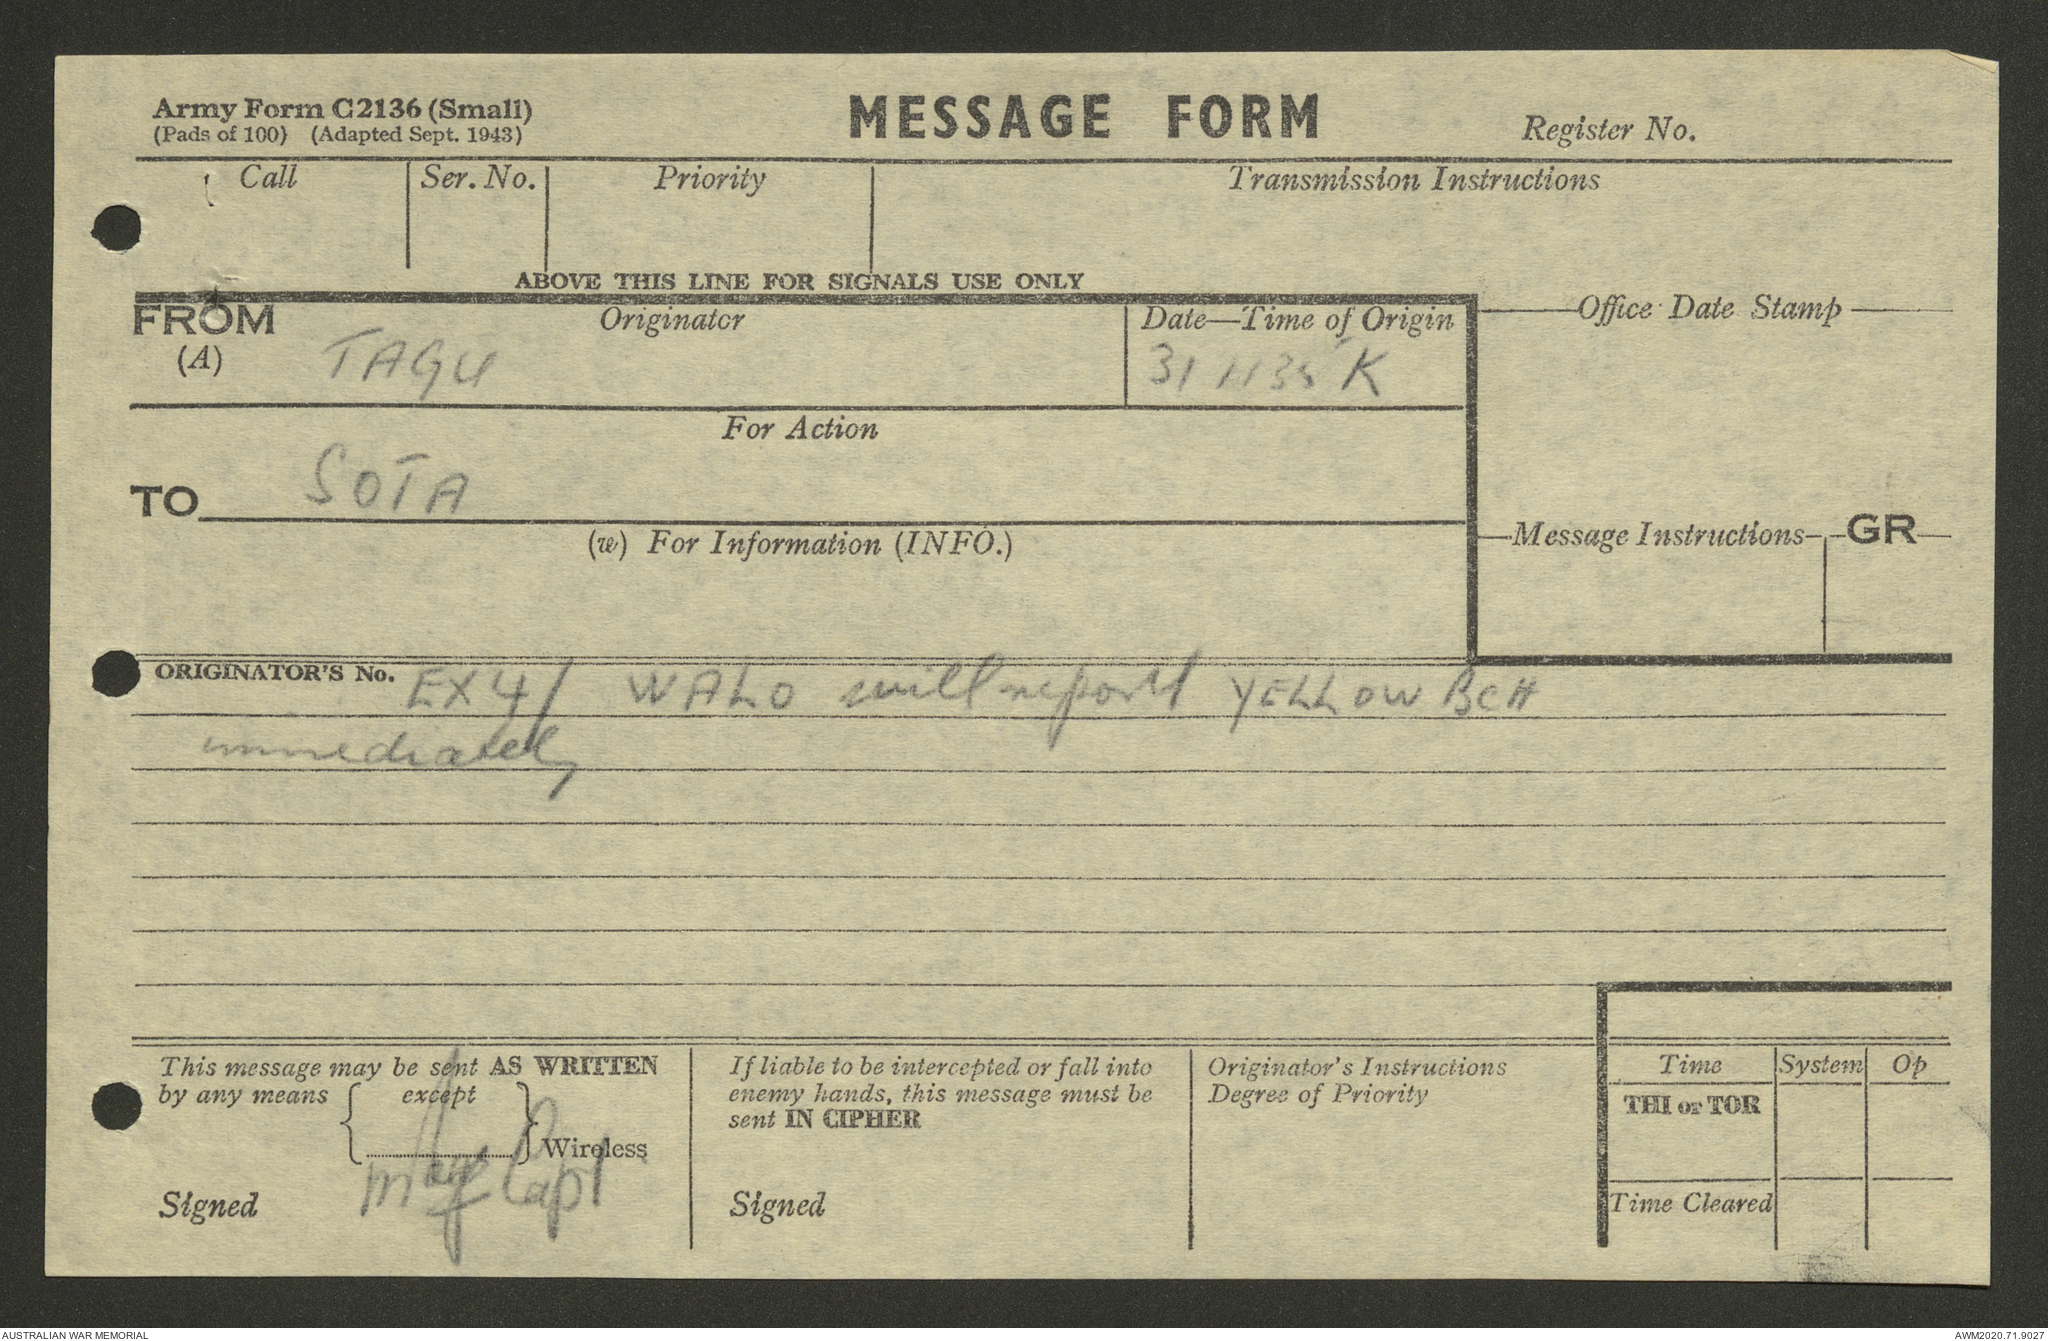 Army Form C2136 (Small)
(Pads of 100) (Adapted Sept. 1943)
MESSAGE FORM
Register No.
Call
Ser. No.
Priority
Transmission Instructions
ABOVE THIS LINE FOR SIGNALS USE ONLY
FROM
(A)
Originator
TAGU
Date—Time of Origin
311135K
Office Date Stamp
For Action
TO
SOTA
(w) For Information (INFO.)
Message Instructions
GR
ORIGINATOR'S No. EX4/ WALO will report YELLOW BCH
immediately
This message may be sent AS WRITTEN
by any means
except
Wireless
Signed
Capt
If liable to be intercepted or fall into
enemy hands, this message must be
sent IN CIPHER
Signed
Originator's Instructions
Degree of Priority
Time
System
Op
THI or TOR
Time Cleared
AUSTRALIAN WAR MEMORIAL
AWM2020.71.9027